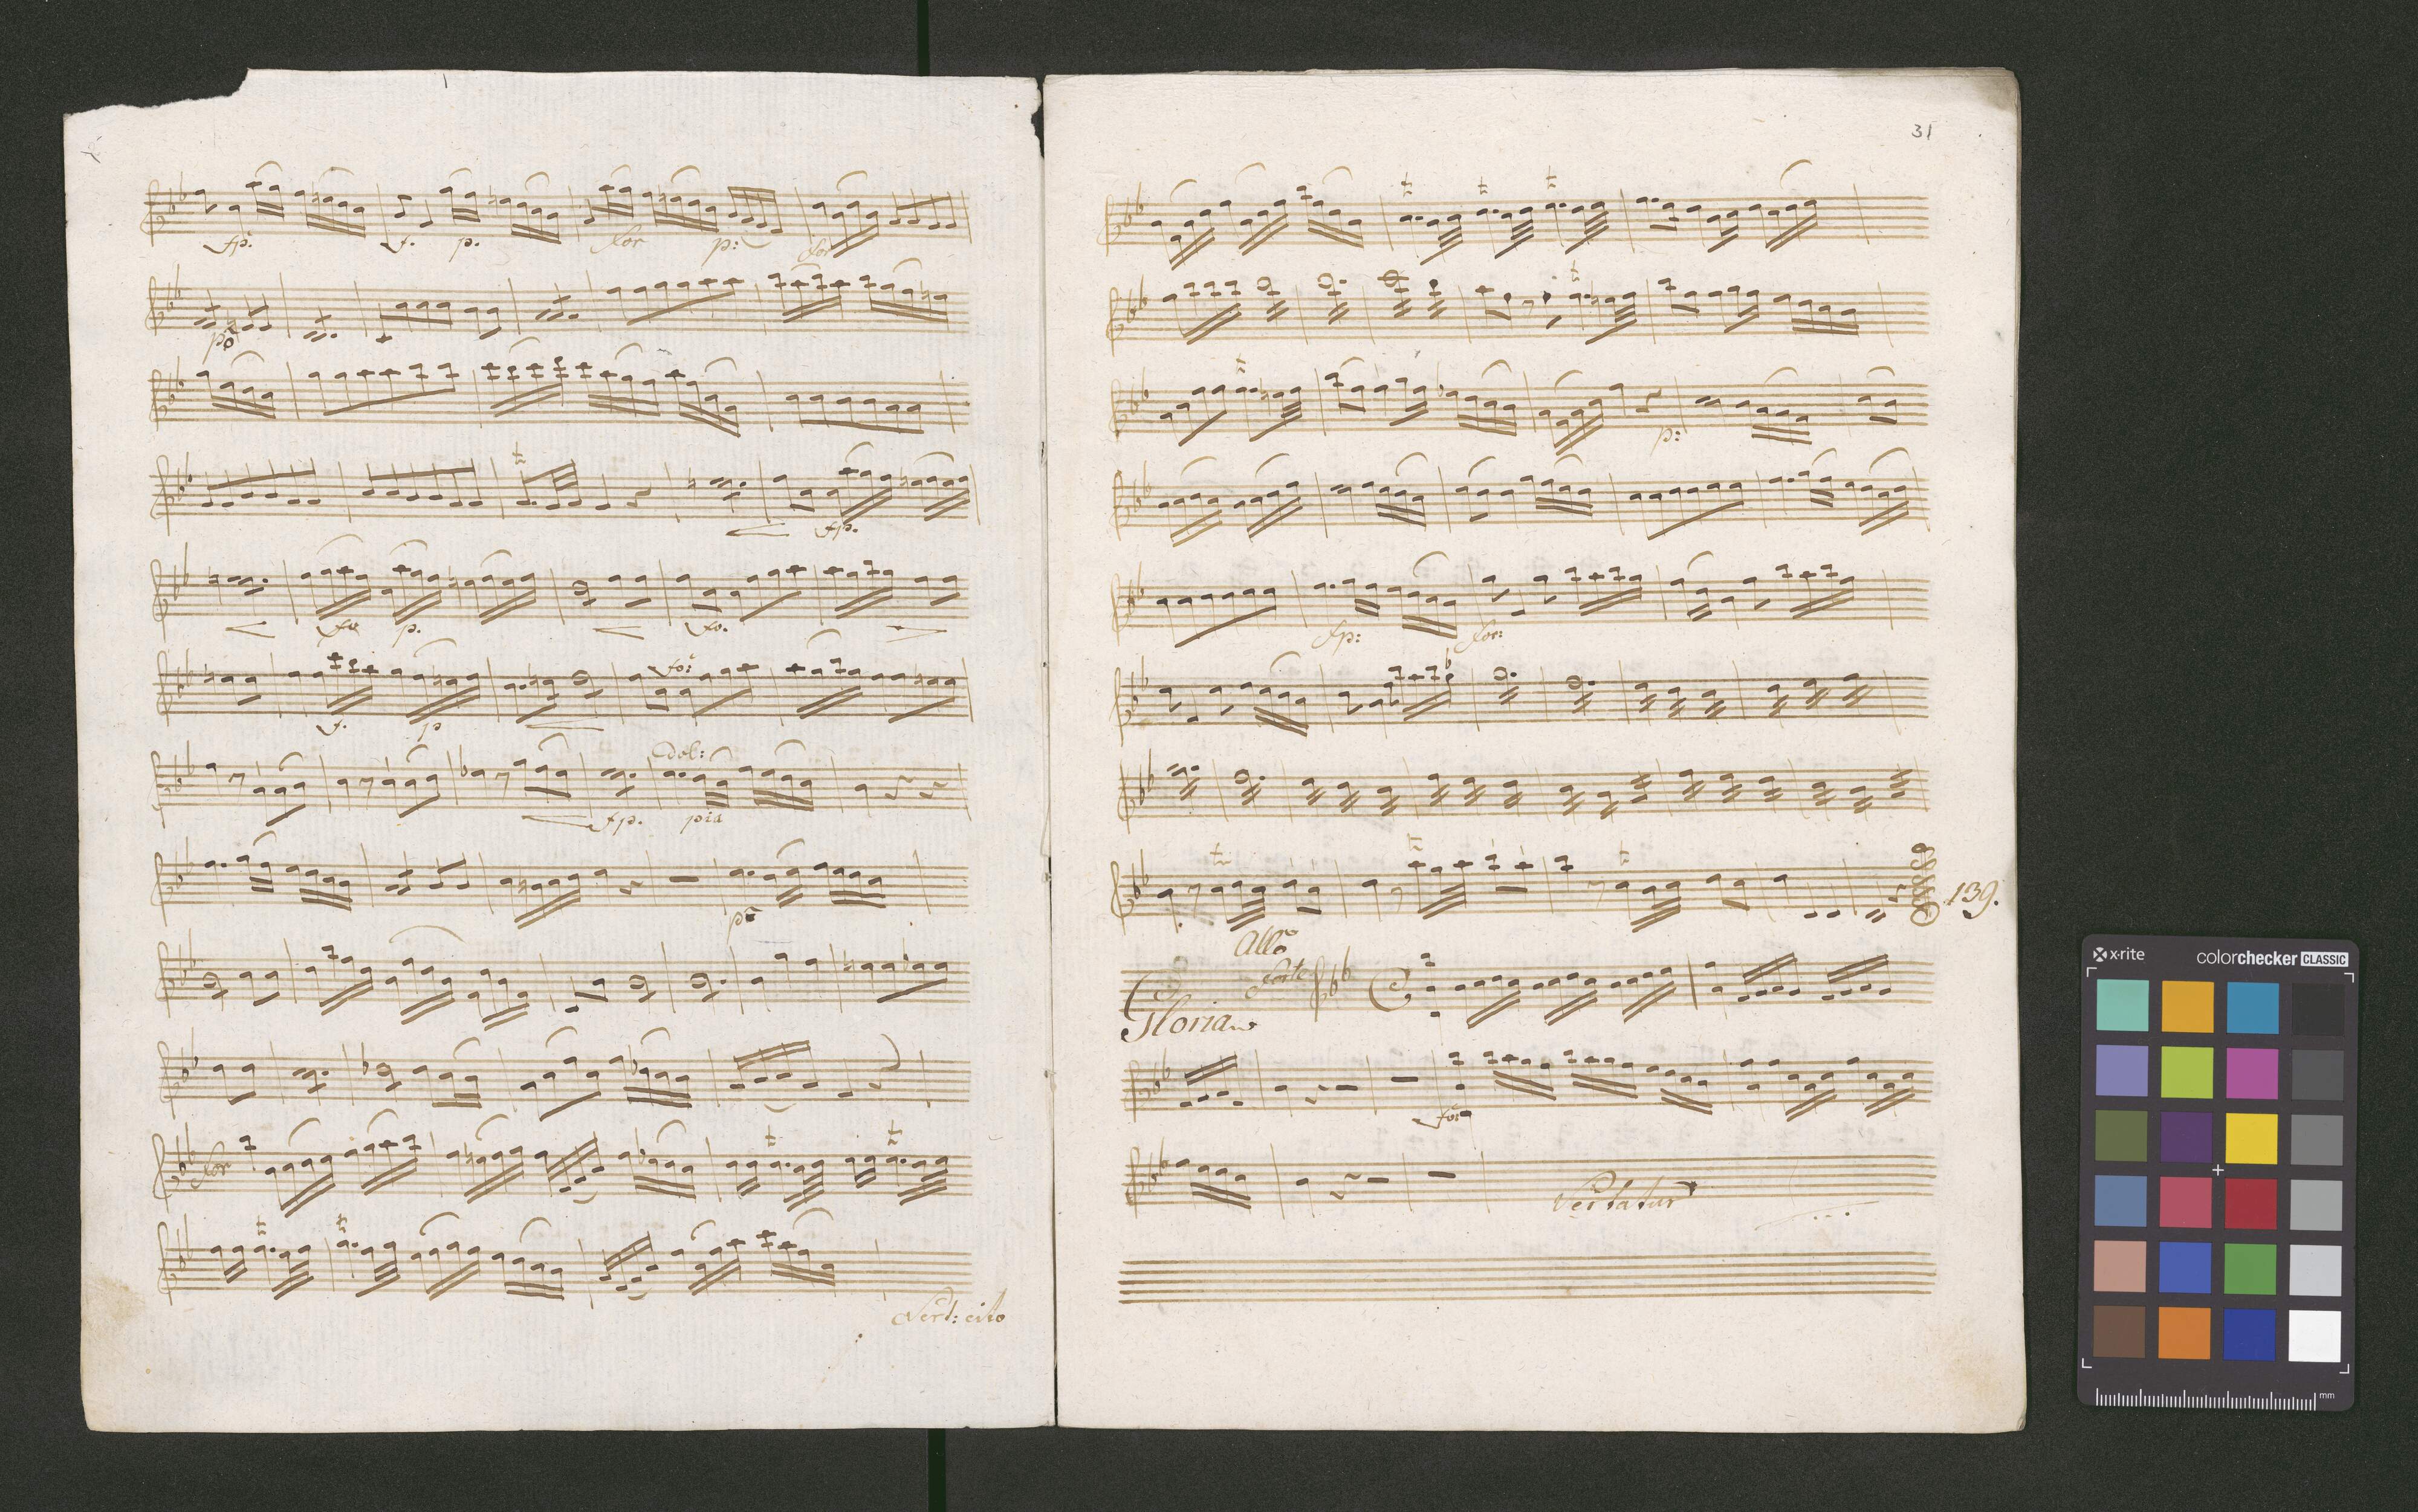 fp. f. p. for p: for
po
fp.
fo p. fo.
f. p fo:
dol:
fp. pia
po
for
Vert: cito
31
p:
fp: for:
139.
Allo
forte
Gloria
fo:
Vertatur
x-rite colorchecker CLASSIC
mm